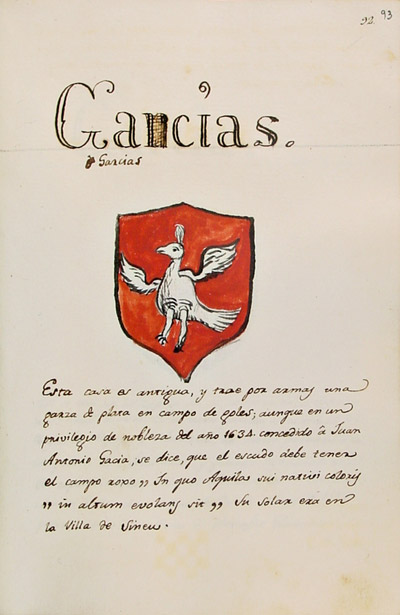 92. 93
Garcias.
Garcias
Esta casa es antigua, y trae por armas una
garza de plata en campo de goles; aunque en un
privilegio de nobleza del año 1634. concedido à Juan
Antonio Gacia, se dice, que el escudo debe tener
el campo roxo „ In quo Aquila sui nativi coloris
„ in altum evolans sit „ Su solar era en
la Villa de Sineu.